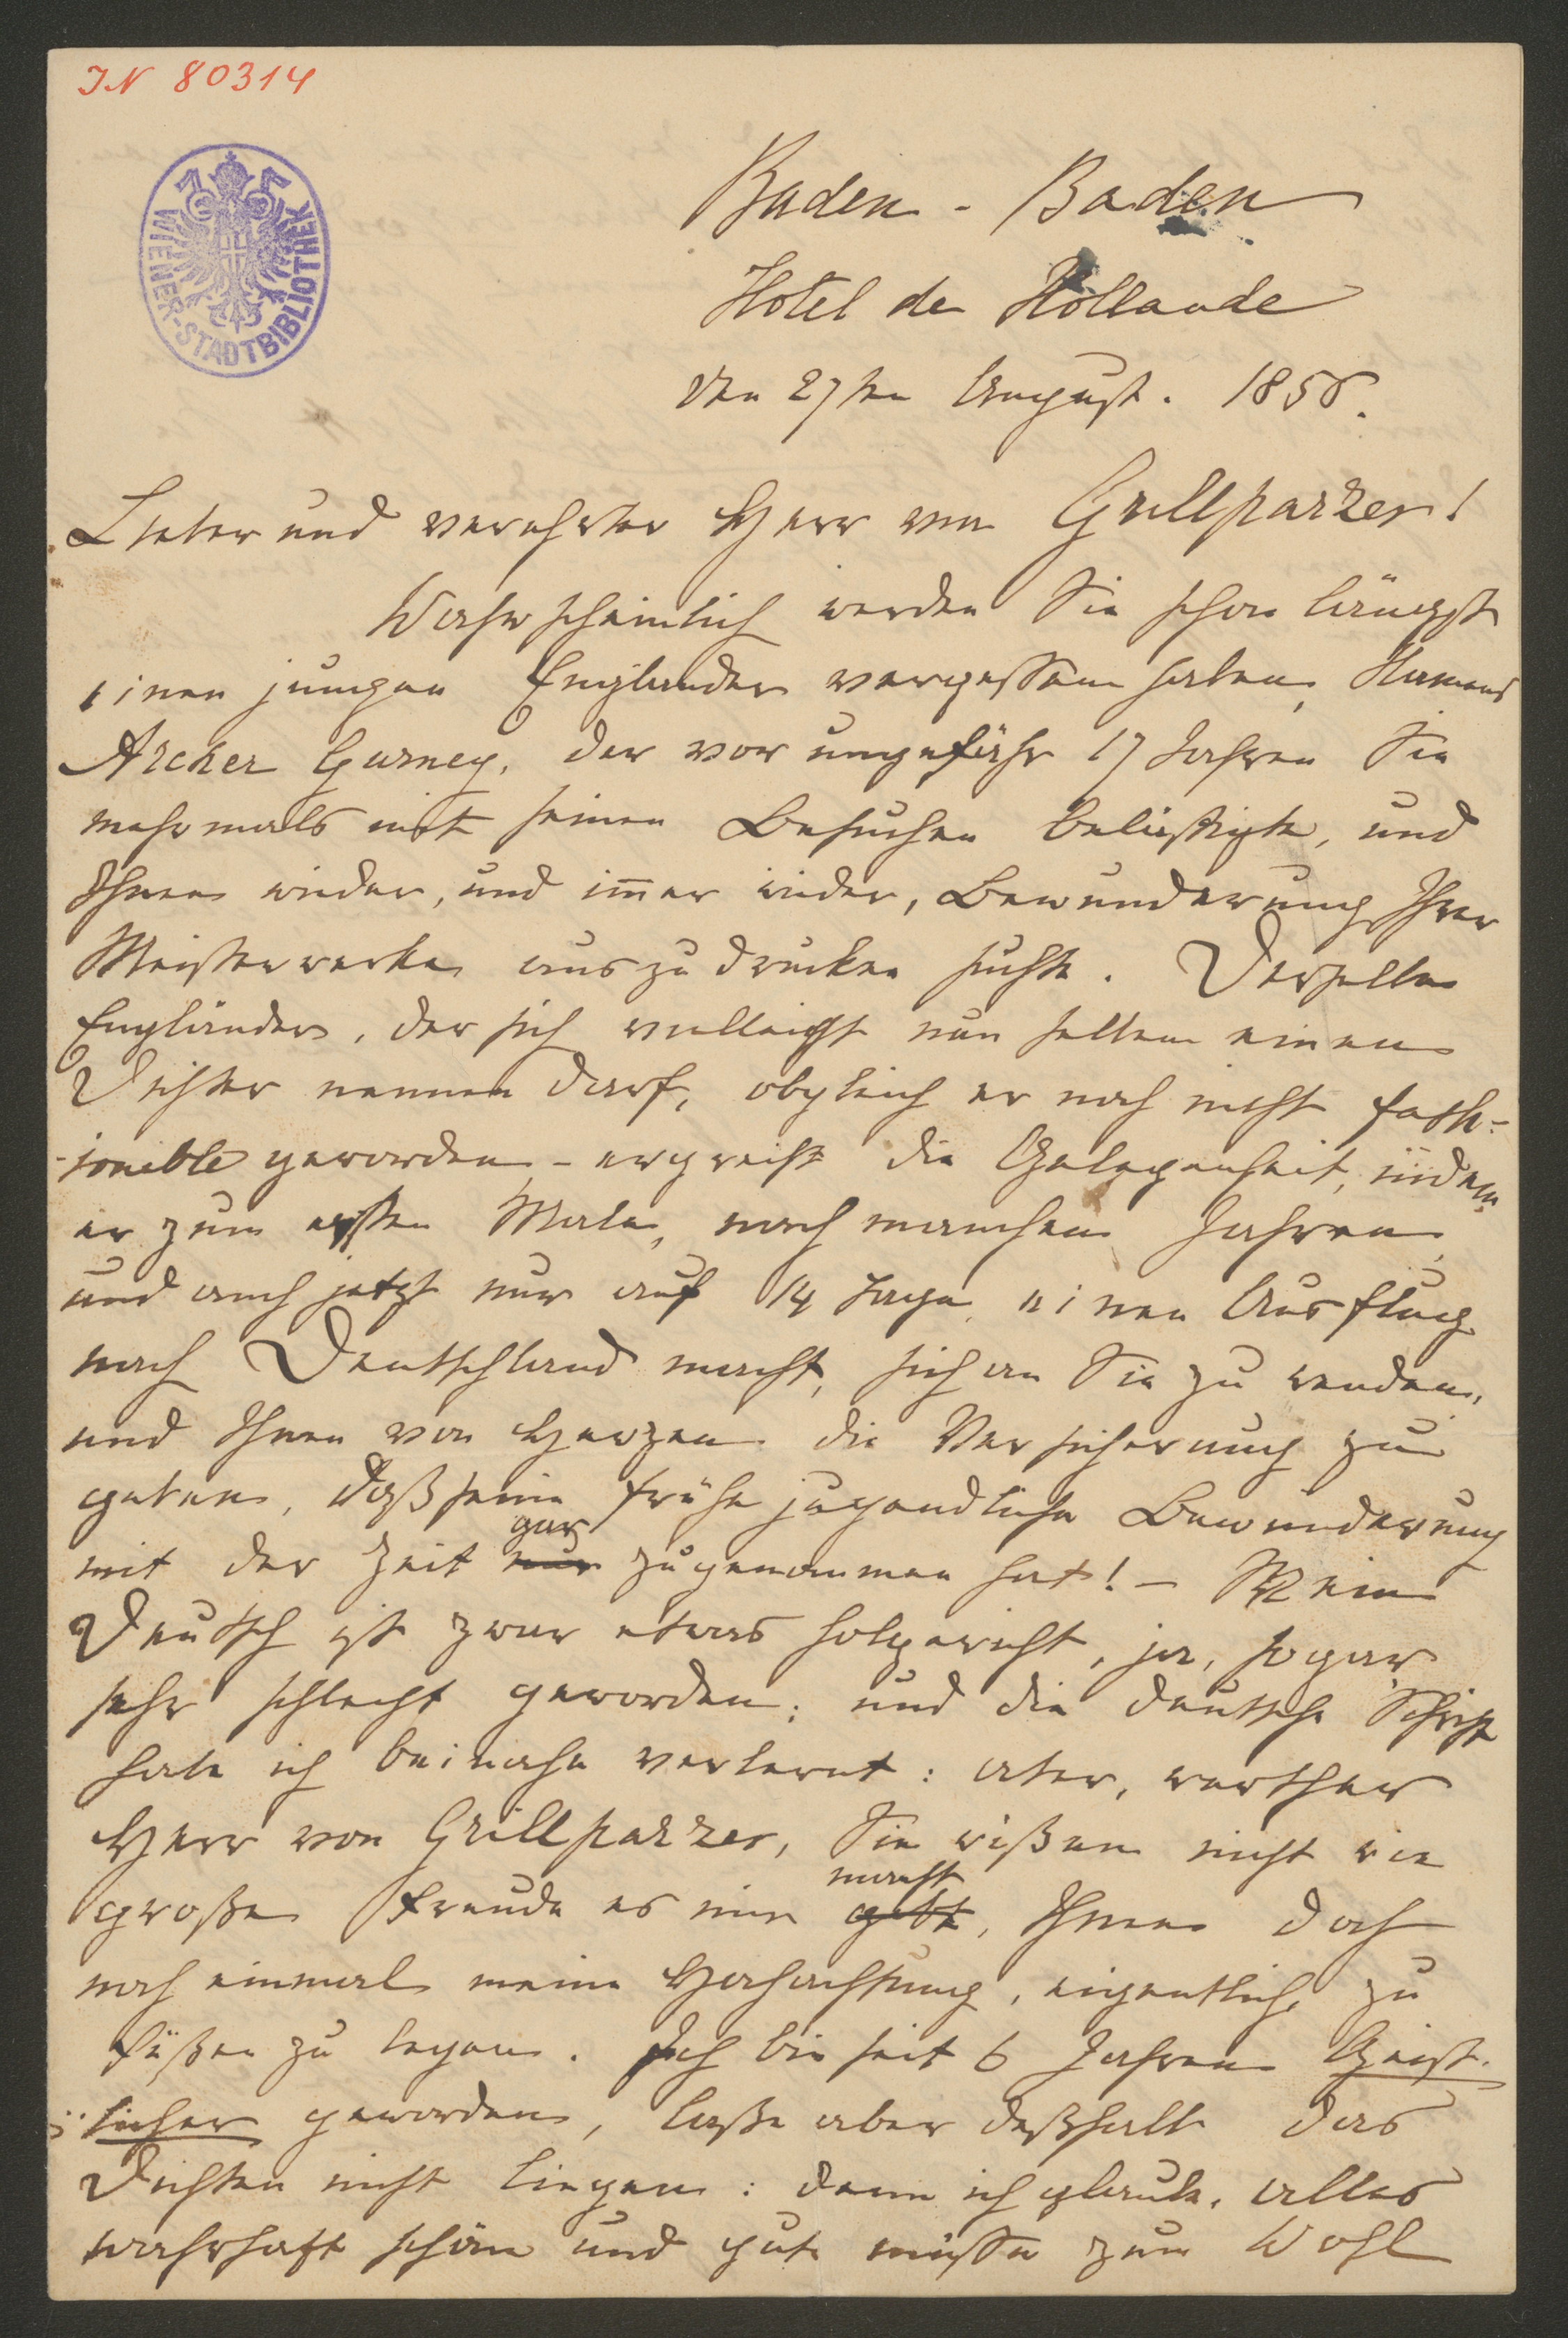 IN 80314
WIENER-STADTBIBLIOTHEK
Baden - Baden
Hotel de Hollande
den 27ten August. 1856.
Lieber und verehrter Herr von Grillparzer!
Wahrscheinlich werden Sie schon längst
einen jungen Engländer vergessen haben, Namens
Archer Gurney, der vor ungefähr 17 Jahren Sie
mehrmals mit seinen Besuchen belästigte, und
Ihnen wieder, und im̄er wieder, Bewunderung Ihrer
Meisterwerke auszudrücken suchte. Derselbe
Engländer, der sich vielleicht nun selber einen
Dichter nennen darf, obgleich er noch nicht fash-
-ionable geworden - ergreift die Gelegenheit, indem
er zum ersten Male, nach manchen Jahren,
und auch jetzt nur auf 14 Tage, einen Ausflug
nach Deutschland macht, sich an Sie zu wenden,
und Ihnen von Herzen die Versicherung zu
geben, daß seine frühe jugendliche Bewunderung
mit der Zeit nur gar zugenommen hat! - Mein
Deutsch ist zwar etwas holpericht, ja, sogar
sehr schlecht geworden; und die deutsche Schrift
habe ich beinahe verlernt: aber, werther
Herr von Grillparzer, Sie wißen nicht wie
große Freude es mir gibt macht, Ihnen doch
noch einmal meine Hochachtung, eigentlich, zu
Füßen zu legen. Ich bin seit 6 Jahren Geist-
licher geworden, laße aber deßhalb das
Dichten nicht liegen: denn ich glaube, alles
wahrhaft schöne und gute müsse zum Wohl